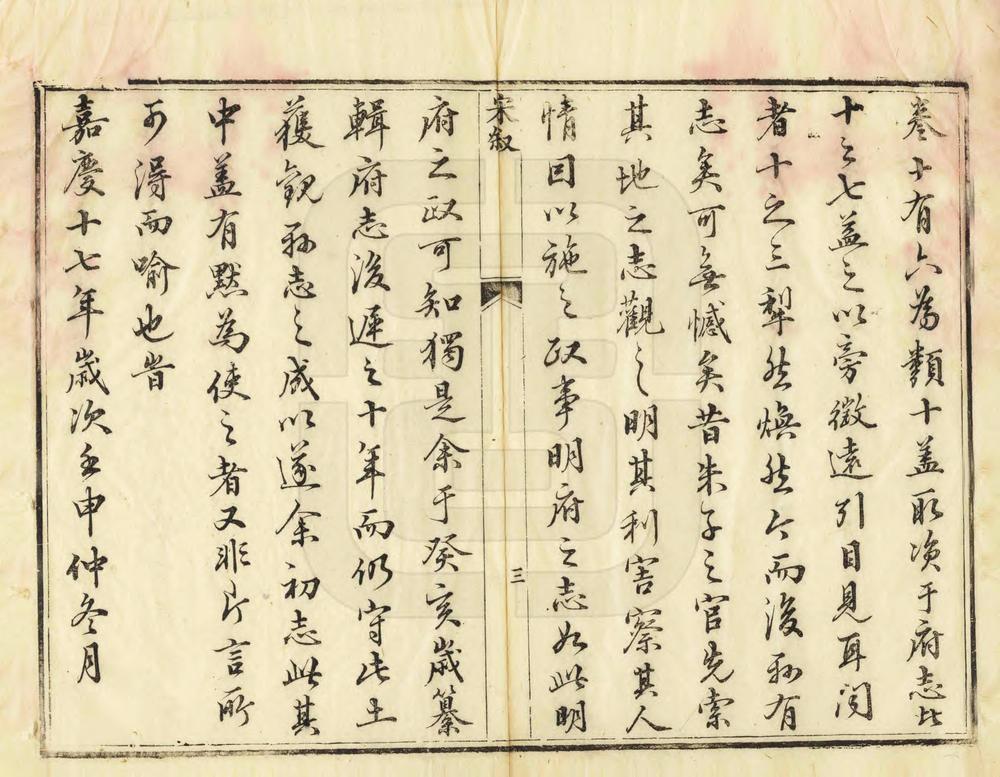 卷十有六為類十蓋取資于府志比
十之七益之以旁徵遠引目見耳聞
者十之三犁然煥然今而後縣有
志矣可無憾矣昔朱子之官先索
其地之志觀之明其利害察其人
情因以施之政事明府之志如此明
宋敘
三
府之政可知獨是余于癸亥歲纂
輯府志後遲之十年而仍守此土
獲觀縣志之成以遂余初志此其
中蓋有默為使之者又非片言所
可得而喻也旹
嘉慶十七年歲次壬申仲冬月